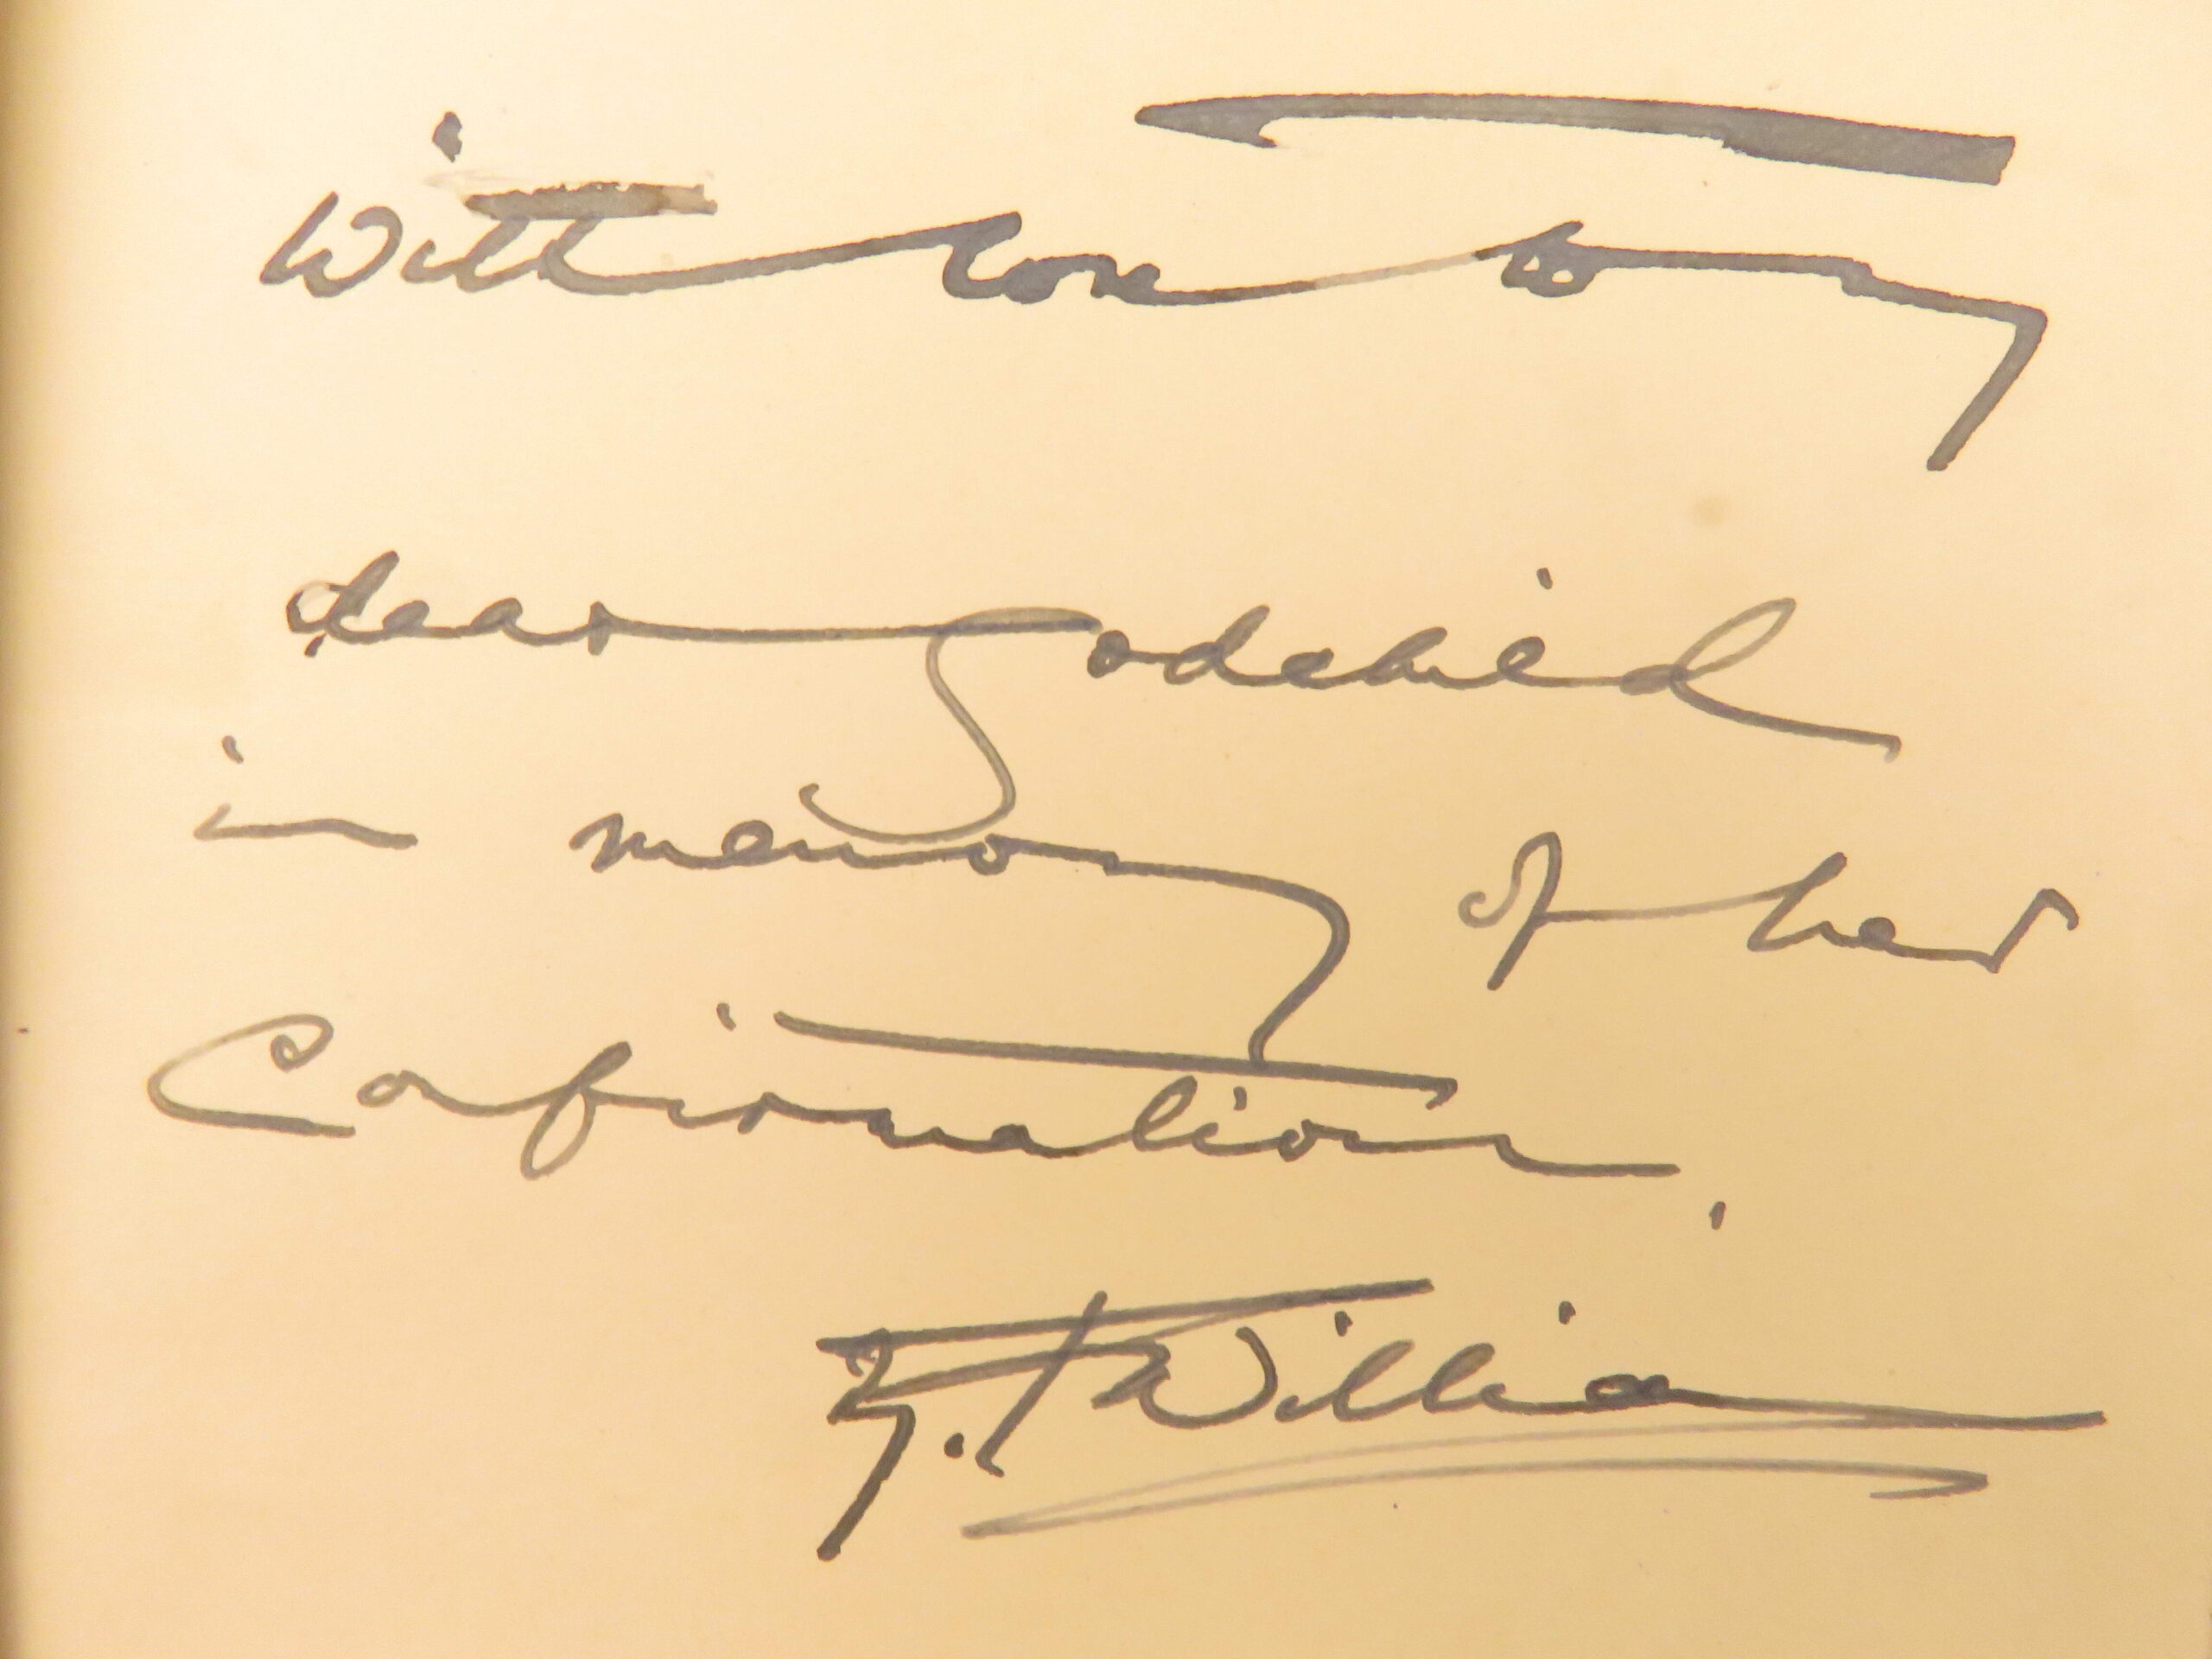 With love to my
dear godchild
in memory of her
Confirmation.
William